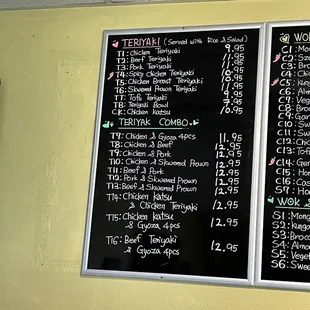 TERIYAKI (Served with Rice & Salad)
T1: Chicken Teriyaki 9.95
T2: Beef Teriyaki 11.95
T3: Pork Teriyaki
T4: Spicy Chicken Teriyaki 10.95
T5: Chicken Breast Teriyaki 10.95
T6: Skewered Prawn Teriyaki
T7: Tofu Teriyaki
T8: Teriyaki Bowl 7.95
CK: Chicken Katsu 10.95
TERIYAKI COMBO
T7: Chicken & Gyoza 4pcs 11.95
T8: Chicken & Beef 12.95
T9: Chicken & Pork 12.95
T10: Chicken & Skewered Prawn 12.95
T11: Beef & Pork 12.95
T12: Pork & Skewered Prawn 12.95
T13: Beef & Skewered Prawn 12.95
T14: Chicken Katsu
& Chicken Teriyaki 12.95
T15: Chicken Katsu
& Gyoza 4pcs 12.95
T16: Beef Teriyaki
& Gyoza 4pcs 12.95
WOK
C1
C2
C3
C4
C5
C6
C7
C8
C9
C10
C11
C12
C13
C14
C15
C16
C17
WOK &
S1
S2
S3
S4
S5
S6